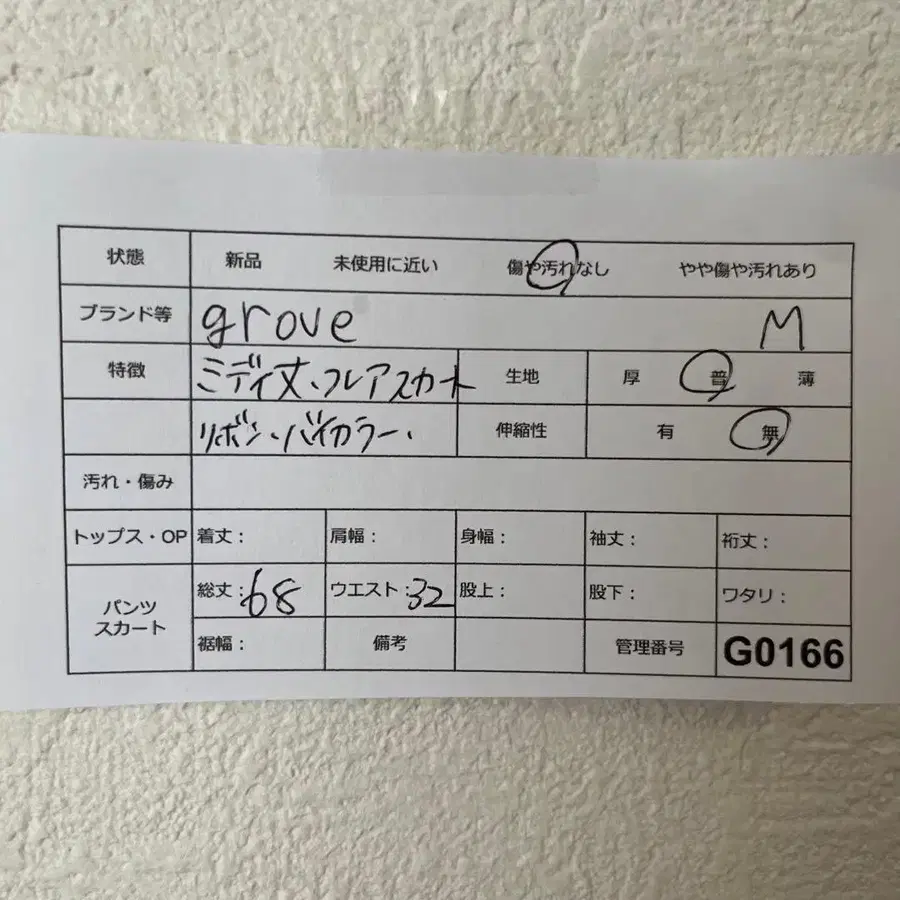 状態 新品 未使用に近い 傷や汚れなし やや傷や汚れあり
ブランド等 grove M
特徴 ミディ丈・フレアスカート 生地 厚 普 薄
リボン・バイカラー・ 伸縮性 有 無
汚れ・傷み
トップス・OP 着丈： 肩幅： 身幅： 袖丈： 裄丈：
パンツ スカート 総丈：68 ウエスト：32 股上： 股下： ワタリ：
裾幅： 備考 管理番号 G0166